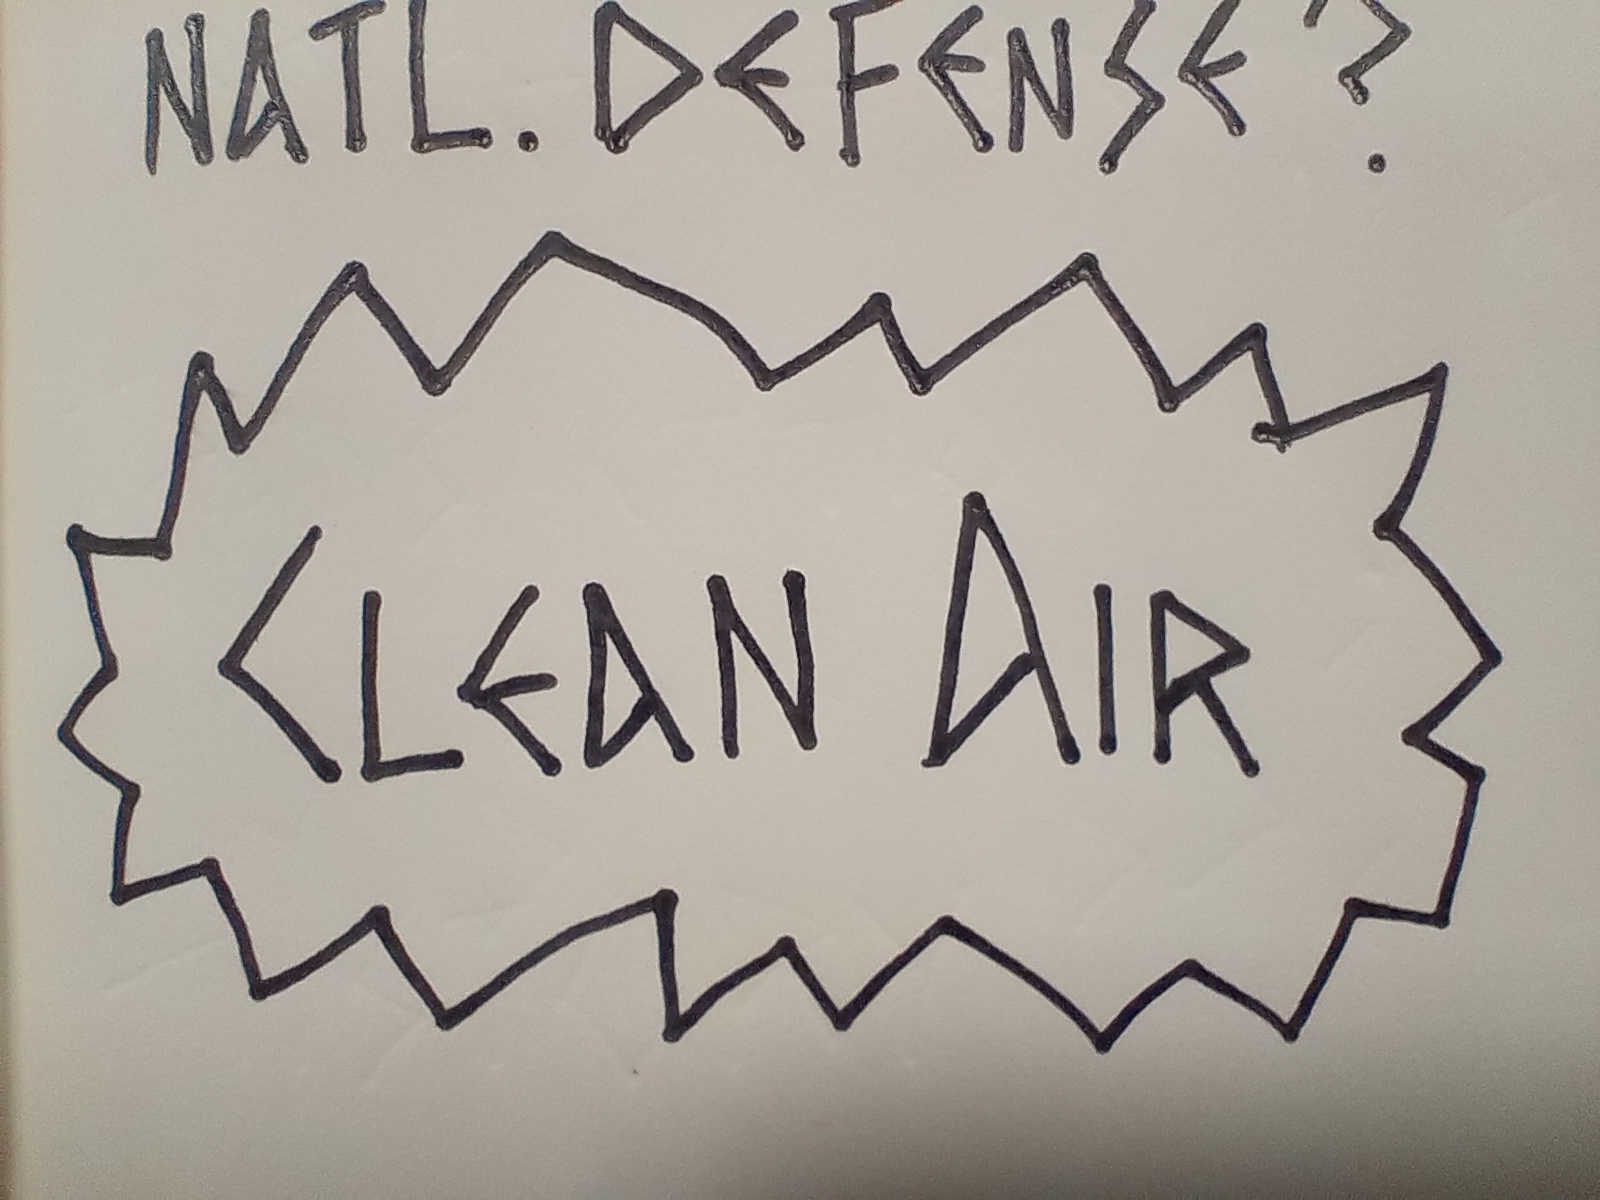 NATL. DEFENSE?
CLEAN AIR